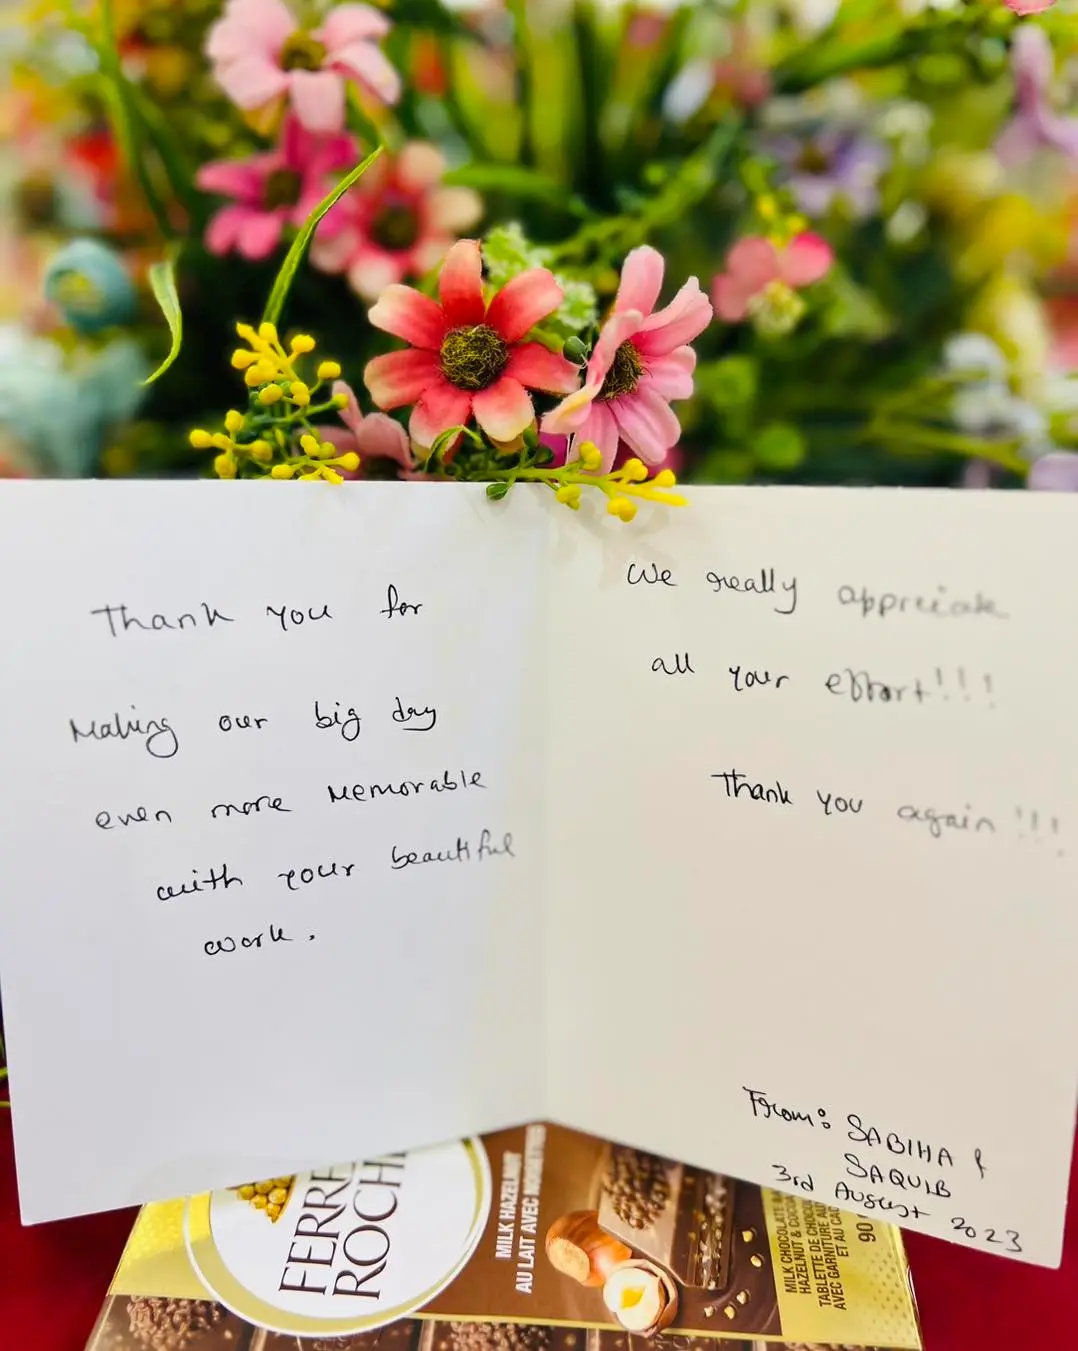 Thank you for
Making our big day
even more Memorable
with your beautiful
work.
We really appreciate
all your effort!!!
Thank you again!!!
From: SABIHA &
SAQUIB
3rd August 2023
FERRE
ROCH
MILK HAZELNUT
AU LAIT AVEC NOISETTES
MILK CHOCOLATE
HAZELNUT & COCOA
TABLETTE DE CHOCO
AVEC GARNITURE AU
ET AU CA
90